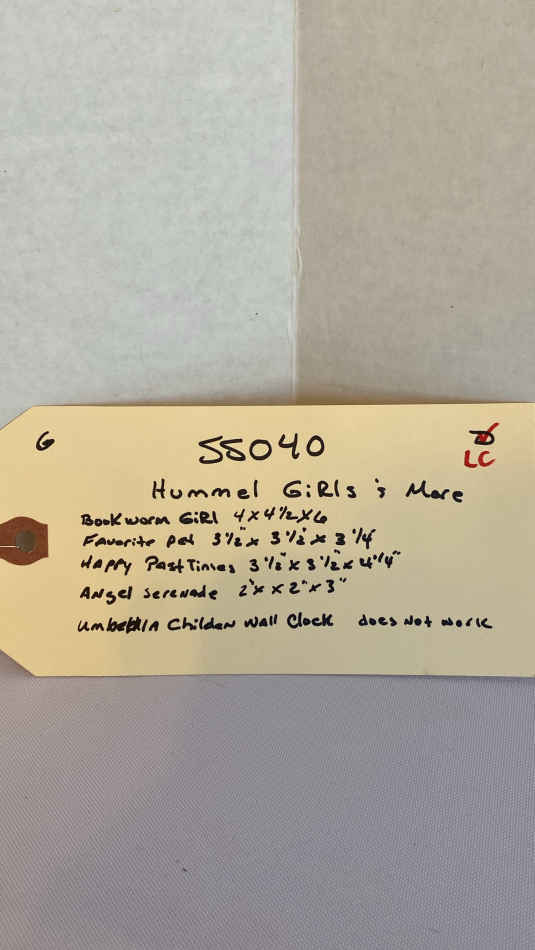 G
55040
LC
Hummel GiRls & More
Bookworm GiRl 4x4½x6
Favorite pet 3½"x 3½"x 3¼"
HAppy PastTimes 3½"x 3½"x 4¼"
Angel Serenade 2"x x 2"x 3"
Children Wall Clock does Not work